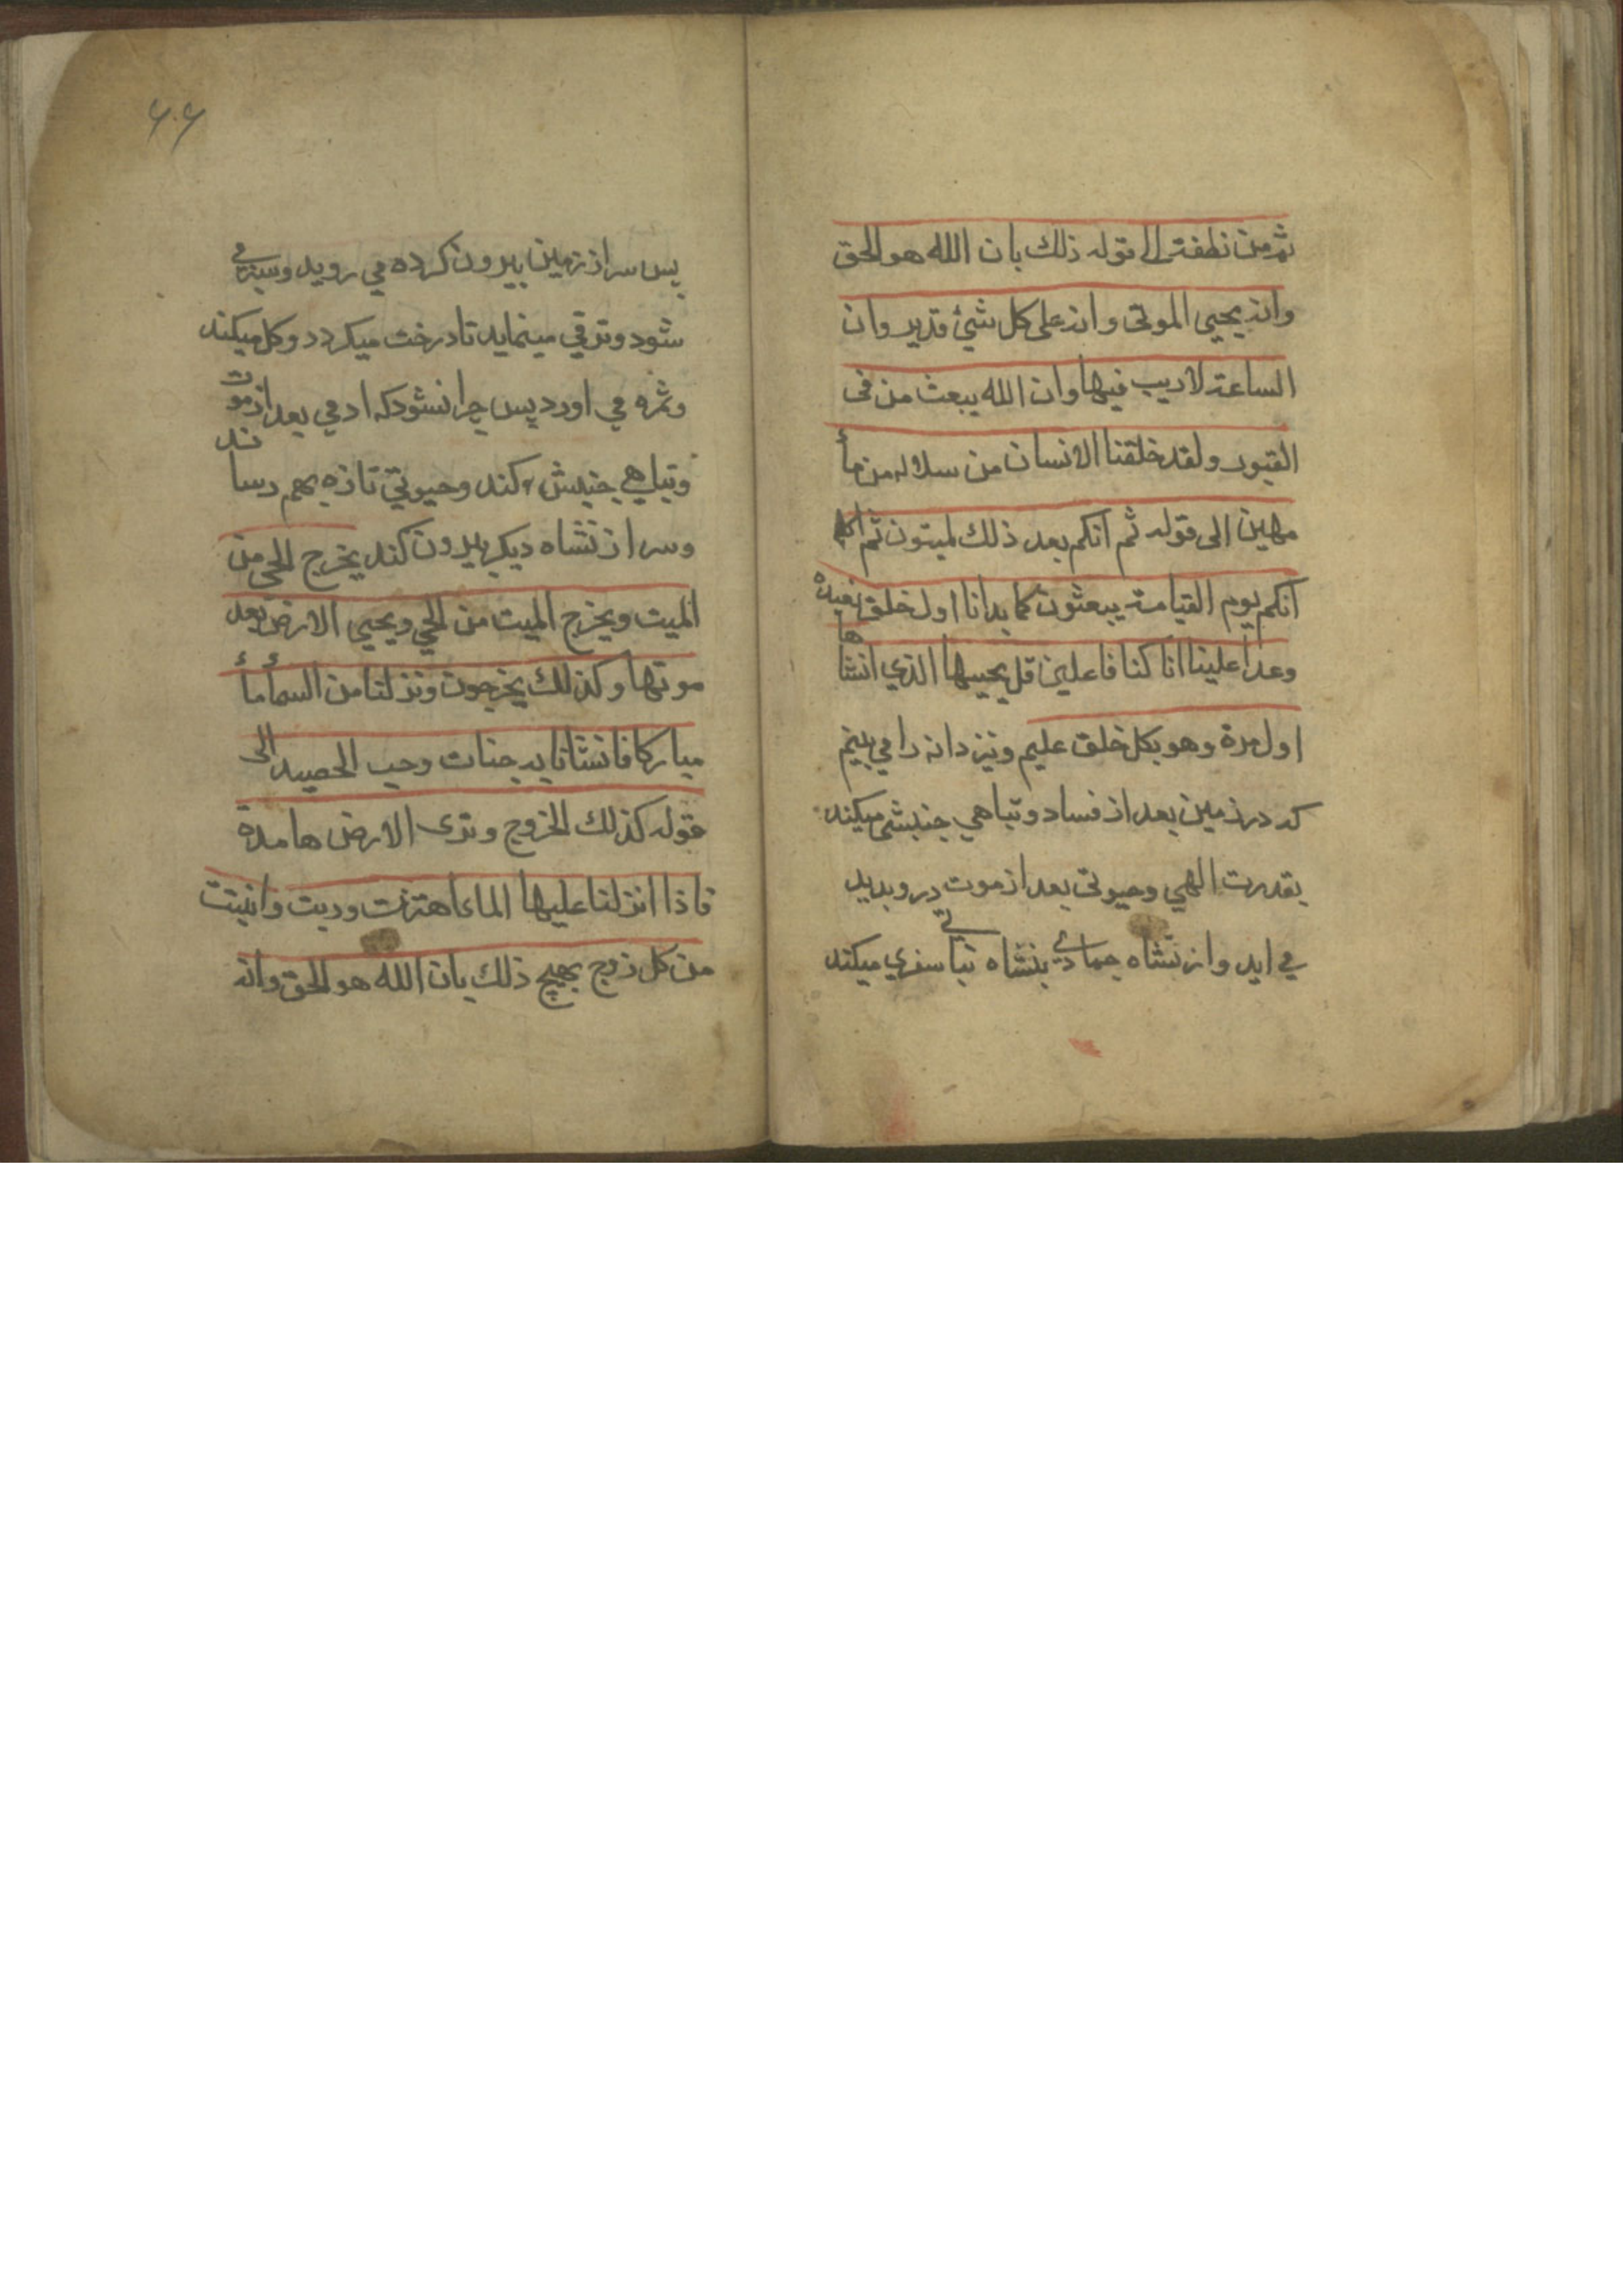 ثم من نطفة الى قوله ذلك بان الله هو الحق
وانه يحيي الموتى وانه على كل شئ قدير وان
الساعة لاريب فيها وان الله يبعث من فى
القبور ولقد خلقنا الانسان من سلاله من مأ
مهين الى قوله ثم انكم بعد ذلك لميتون ثم
انكم يوم القيامة يبعثون كما بدانا اول خلق نعيده
وعدا علينا انا كنا فاعلين قل يحييها الذي انشاها
اول مرة وهو بكل خلق عليم ونيز دانه را مي بينم
كه در زمين بعد از فساد وتباهي جنبشى ميكند
بقدرت الهي وحيوتى بعد از موت در و بديد
مي ايد واز نشاه جمادي بنشاه نباتي سفري ميكند
۶۶
پس سر از زمين بيرون كرده مي رويد وسبز مي
شود وترقي مينمايد تا درخت ميكردد وكل ميكند
وثمره مي اورد پس چرا نشود كه ادمي بعد از موت
وتباهي جنبش كند وحيوتي تازه بهم رساند
وسر از نشاه ديكر بيرون كند يخرج الحي من
الميت ويخرج الميت من الحي ويحيي الارض بعد
موتها وكذلك يخرجون ونزلنا من السمأ مأ
مباركا فانشانا به جنات وحب الحصيد الى
قوله كذلك الخروج وترى الارض هامدة
فاذا انزلنا عليها الماء اهتزت وربت وانبتت
من كل زوج بهيج ذلك بان الله هو الحق وانه